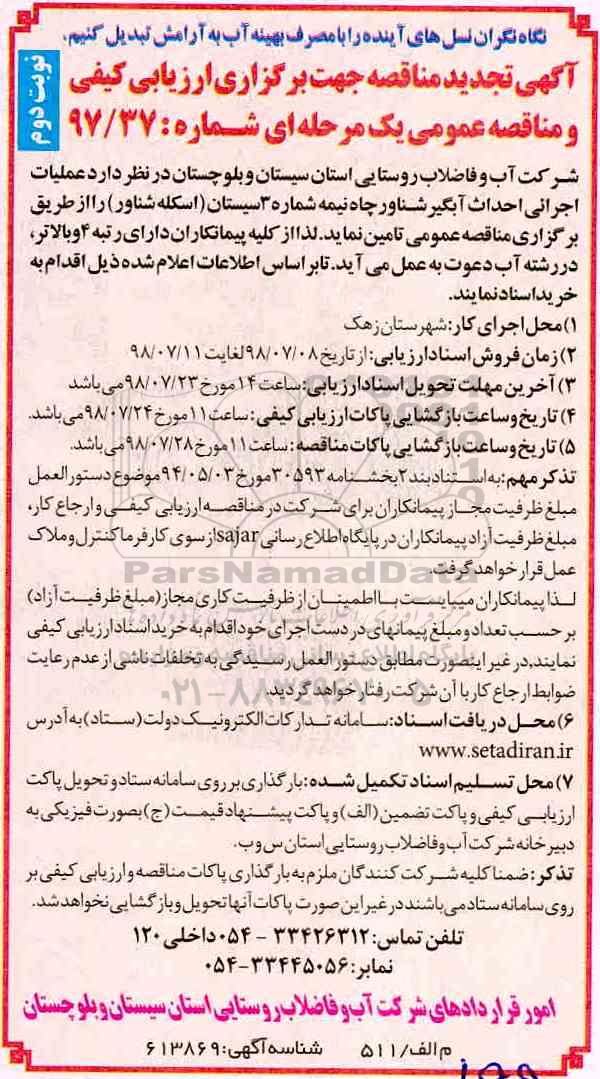 نگاه نگران نسل های آینده را با مصرف بهینه آب به آرامش تبدیل کنیم.
نوبت دوم
آگهی تجدید مناقصه جهت برگزاری ارزیابی کیفی
و مناقصه عمومی یک مرحله ای شماره : ۹۷/۳۷
شرکت آب و فاضلاب روستایی استان سیستان و بلوچستان در نظر دارد عملیات
اجرائی احداث آبگیر شناور چاه نیمه شماره ۳ سیستان (اسکله شناور) را از طریق
برگزاری مناقصه عمومی تامین نماید. لذا از کلیه پیمانکاران دارای رتبه ۴ و بالاتر،
در رشته آب دعوت به عمل می آید. تا بر اساس اطلاعات اعلام شده ذیل اقدام به
خرید اسناد نمایند.
۱) محل اجرای کار: شهرستان زهک
۲) زمان فروش اسناد ارزیابی: از تاریخ ۹۸/۰۷/۰۸ لغایت ۹۸/۰۷/۱۱
۳) آخرین مهلت تحویل اسناد ارزیابی: ساعت ۱۴ مورخ ۹۸/۰۷/۲۳ می باشد
۴) تاریخ و ساعت بازگشایی پاکات ارزیابی کیفی: ساعت ۱۱ مورخ ۹۸/۰۷/۲۴ می باشد.
۵) تاریخ و ساعت بازگشایی پاکات مناقصه: ساعت ۱۱ مورخ ۹۸/۰۷/۲۸ می باشد.
تذکر مهم: به استناد بند ۲ بخشنامه ۳۰۵۹۳ مورخ ۹۴/۰۵/۰۳ موضوع دستور العمل
مبلغ ظرفیت مجاز پیمانکاران برای شرکت در مناقصه ارزیابی کیفی و ارجاع کار،
مبلغ ظرفیت آزاد پیمانکاران در پایگاه اطلاع رسانی sajar از سوی کارفرما کنترل و ملاک
عمل قرار خواهد گرفت.
ParsNamadData
لذا پیمانکاران میبایست با اطمینان از ظرفیت کاری مجاز (مبلغ ظرفیت آزاد)
بر حسب تعداد و مبلغ پیمانهای در دست اجرای خود اقدام به خرید اسناد ارزیابی کیفی
نمایند. در غیر اینصورت مطابق دستور العمل رسیدگی به تخلفات ناشی از عدم رعایت
ضوابط ارجاع کار با آن شرکت رفتار خواهد گردید.
۰۲۱-۸۸۳۴۹۶۷۰-۵
۶) محل دریافت اسناد: سامانه تدارکات الکترونیک دولت (ستاد) به آدرس
www.setadiran.ir
۷) محل تسلیم اسناد تکمیل شده: بارگذاری بر روی سامانه ستاد و تحویل پاکت
ارزیابی کیفی و پاکت تضمین (الف) و پاکت پیشنهاد قیمت (ج) بصورت فیزیکی به
دبیرخانه شرکت آب و فاضلاب روستایی استان س و ب.
تذکر: ضمنا کلیه شرکت کنندگان ملزم به بارگذاری پاکات مناقصه و ارزیابی کیفی بر
روی سامانه ستاد می باشند در غیر این صورت پاکات آنها تحویل و بازگشایی نخواهد شد.
تلفن تماس: ۳۳۴۲۶۳۱۲ - ۰۵۴ داخلی ۱۲۰
نمابر: ۳۳۴۴۵۰۵۶-۰۵۴
امور قراردادهای شرکت آب و فاضلاب روستایی استان سیستان و بلوچستان
م الف/ ۵۱۱ شناسه آگهی: ۶۱۳۸۶۹